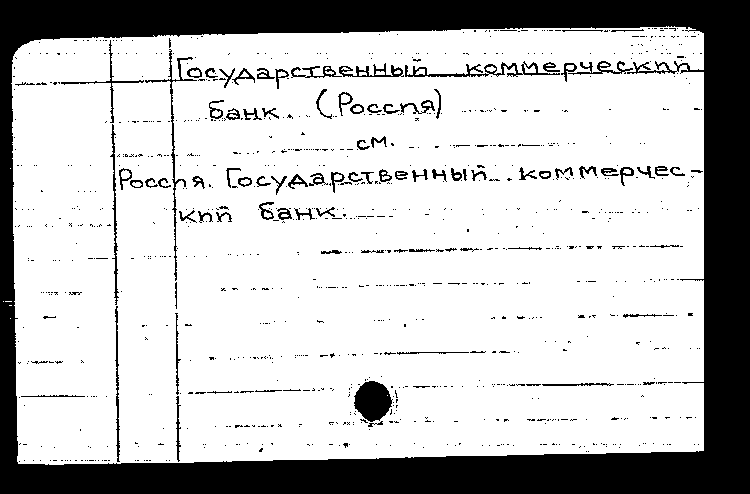 Государственный коммерческий
банк. (Россия)
см.
Россия. Государственный коммерчес-
кий банк.